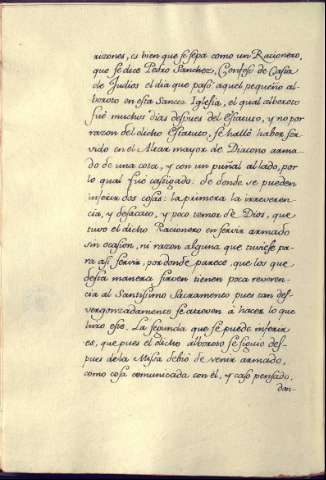 razones, es bien que se sepa como un Racionero,
que se dice Pedro Sanchez, Confeso de Casta
de Judios el dia que pasó aquel pequeño al-
boroto en esta Santa Iglesia, el qual alboroto
fué muchos dias despues del Estatuto, y no por
razon del dicho Estatuto, se halló haber ser-
vido en el Altar mayor de Diacono arma-
do de una cota, y con un puñal al lado, por
lo qual fué castigado: de donde se pueden
inferir dos cosas: la primera la irreveren-
cia, y desacato, y poco temor de Dios, que
tuvo el dicho Racionero en servir armado
sin ocasion, ni razon alguna que tuviese pa-
ra asi servir, por donde parece, que los que
desta manera sirven tienen poca reveren-
cia al Santisimo Sacramento pues tan des-
vergonzadamente se atreven à hacer lo que
hizo este. La segunda que se puede inferir
es, que pues el dicho alboroto se siguió des-
pues de la Misa debió de venir armado,
como cosa comunicada con él, y caso pensado,
don-